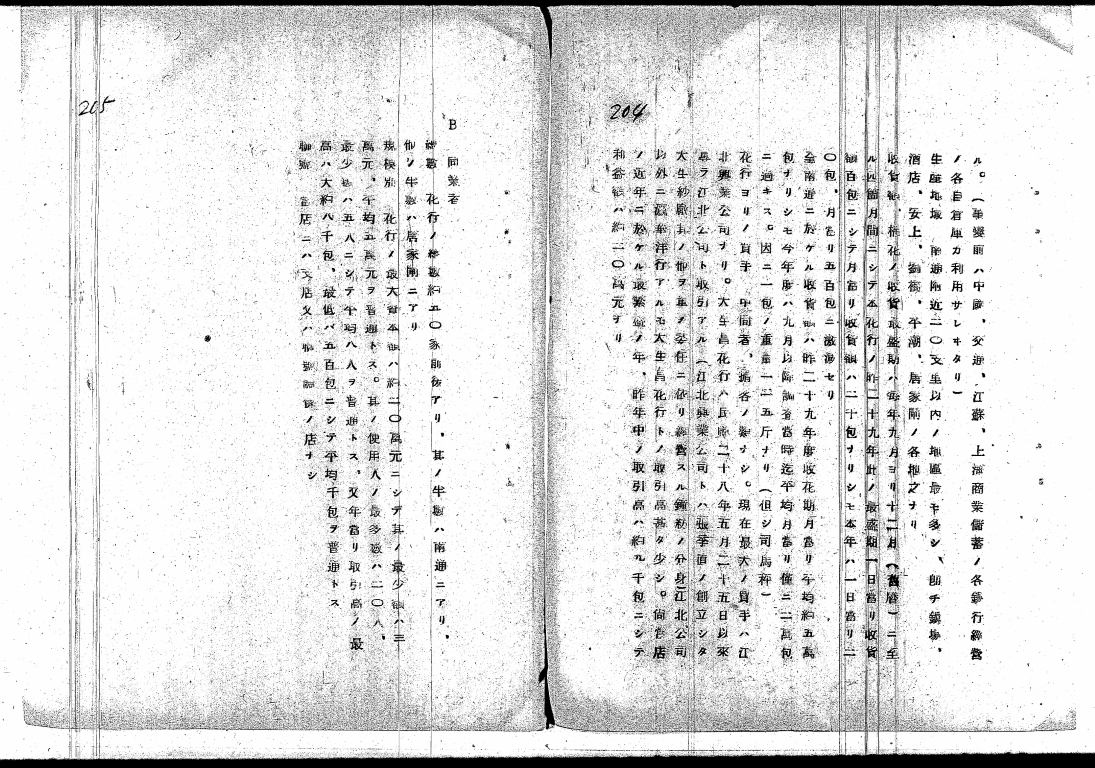 204
ル。(事變前ハ中國、交通、江蘇、上海商業儲蓄ノ各銀行經營
ノ各自倉庫カ利用サレキタリ)
生産地域 南通附近二〇支里以内ノ地區最モ多シ、即チ鎭場、
酒店、安上、劉橋、平潮、唐家閘ノ各地之ナリ
收貨 棉花ノ收貨最盛期ハ每年九月ヨリ十二月(舊曆)ニ至
ル四箇月間ニシテ本花行ノ昨二十九年此ノ最盛期一日當リ收貨
額百包ニシテ月當リ收貨額ハ二千包ナリシモ本年ハ一日當リ二
〇包、月當リ五百包ニ激減セリ
全南通ニ於ケル收貨額ハ昨二十九年度收花期月當リ平均約五萬
包ナリシモ今年度ハ九月以降調査當時迄平均月當リ僅ニ二萬包
ニ過キス。因ニ一包ノ重量一二五斤ナリ(但シ司馬秤)
花行ヨリノ買手 中間者、捐客ノ類ナシ。現在最大ノ買手ハ江
北興業公司ナリ。大生昌花行ハ民國二十八年五月二十五日以來
專ラ江北公司ト取引アル(江北興業公司トハ張謇直ノ創立シタ
大生紗廠其ノ他ヲ軍ノ委任ニ依リ經營スル鐘紡ノ分身)江北公司
以外ニ 洋行アルモ大生昌花行トノ取引高甚タ少シ。尙當店
ノ近年ニ於ケル最繁盛ノ年、昨年中ノ取引高ハ約九千包ニシテ
利益額ハ約二〇萬元ナリ
205
B 同業者
總數 花行ノ總數約五〇家前後アリ、其ノ半數ハ南通ニアリ、
他ノ半數ハ唐家閘ニアリ
規模別 花行ノ最大資本額ハ約二〇萬元ニシテ其ノ最少額ハ三
萬元、平均五萬元ヲ普通トス。其ノ使用人ノ最多數ハ二〇人、
最少數ハ五人ニシテ平均八人ヲ普通トス、又年當リ取引高ノ最
高ハ大約八千包、最低ハ五百包ニシテ平均千包ヲ普通トス
聯號 當店ニハ支店又ハ聯號關係ノ店ナシ